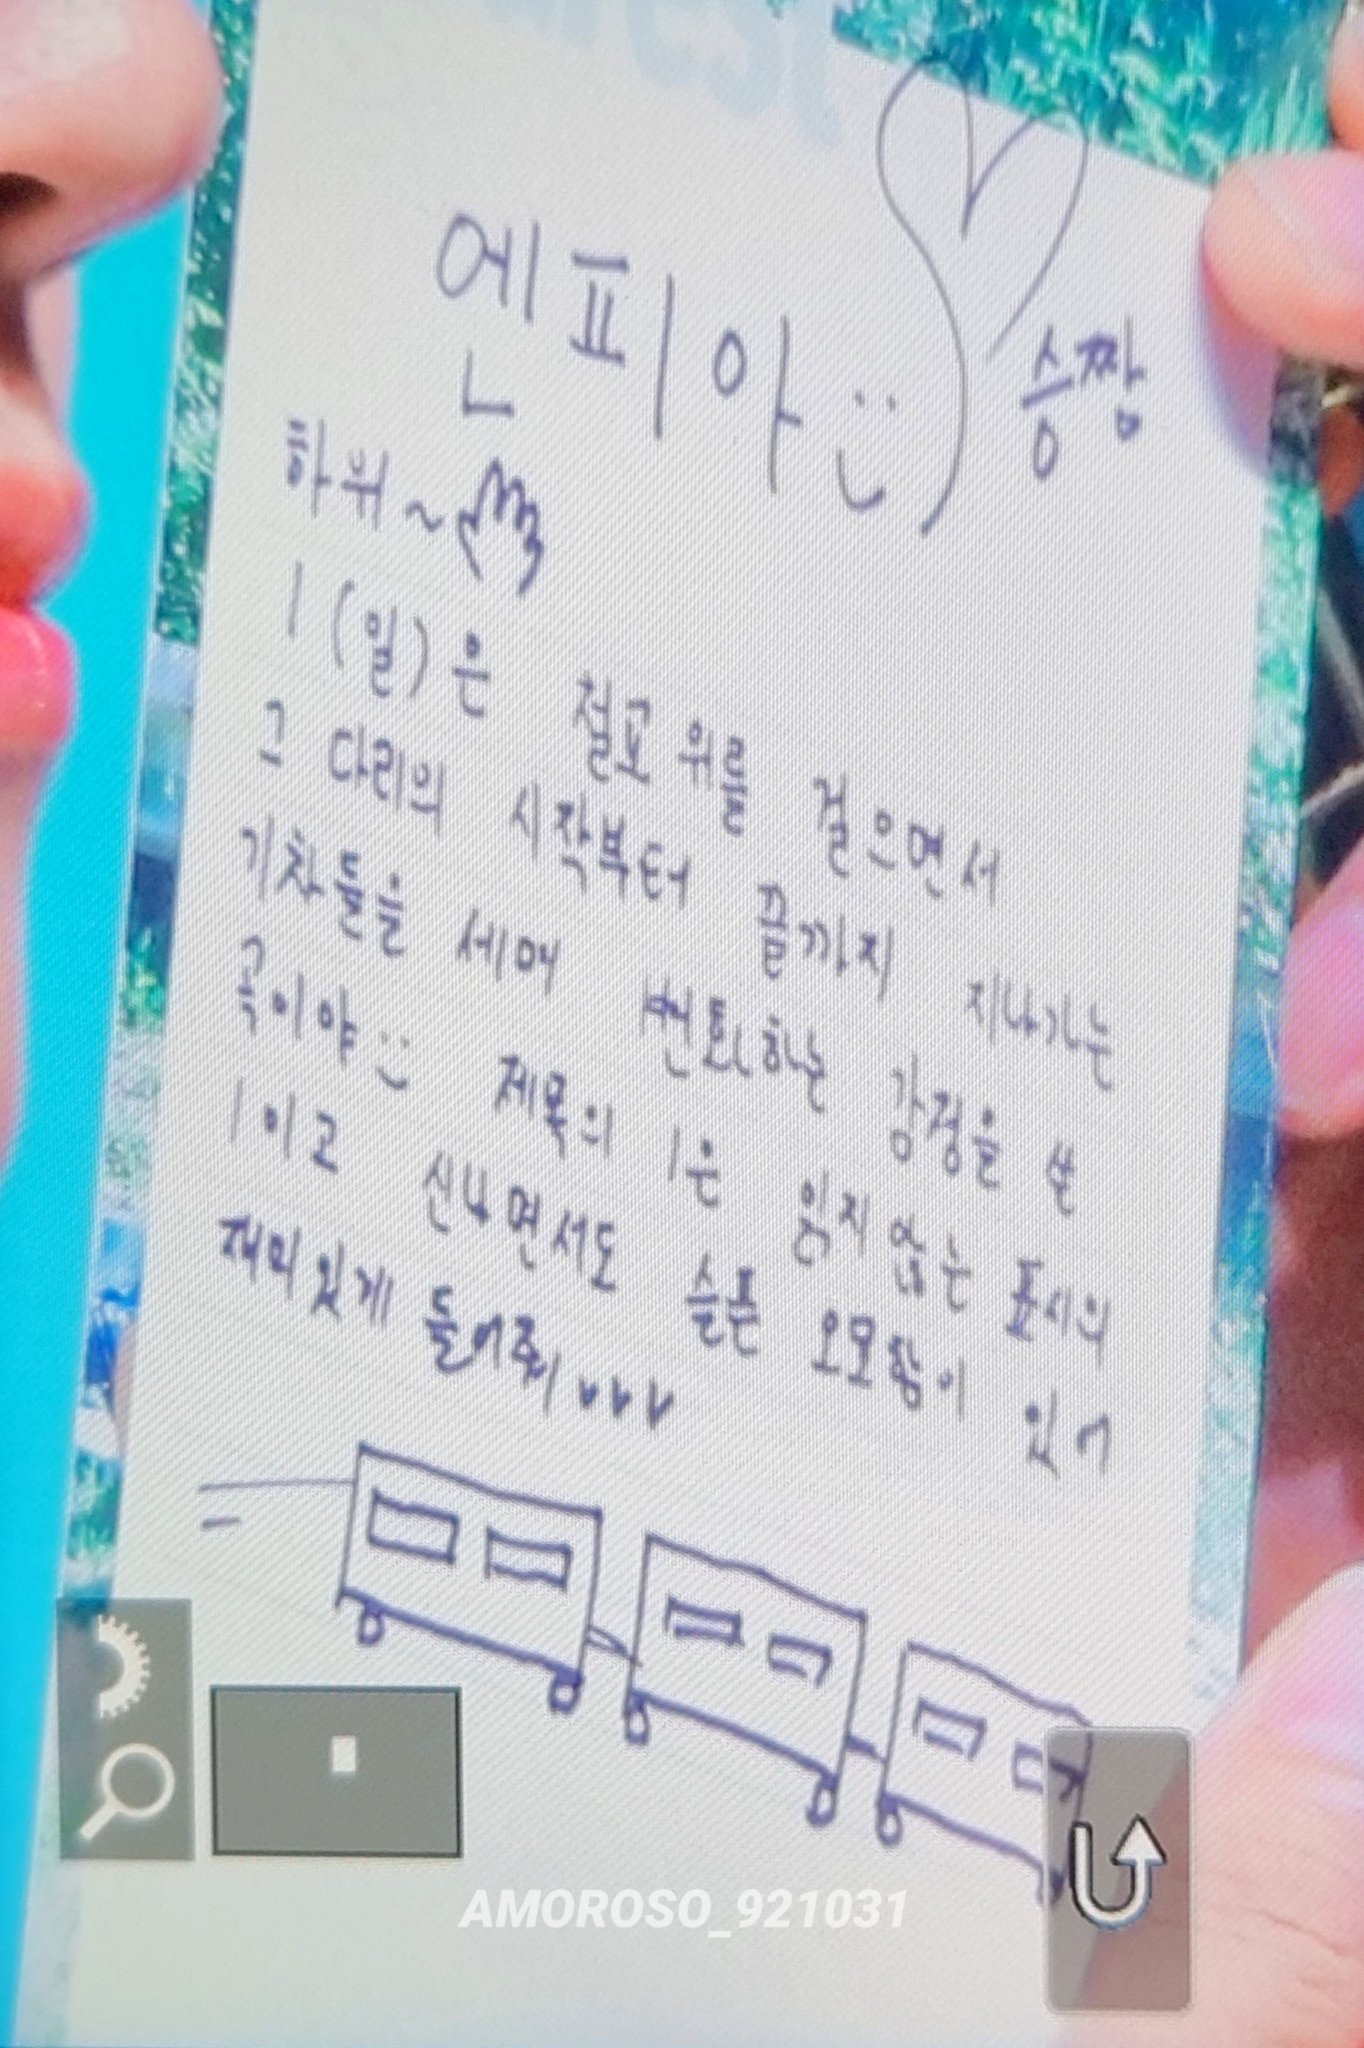 엔피아 :)
승짱
하위~
1(일)은 철교 위를 걸으면서
그 다리의 시작부터 끝까지 지나가는
기차들을 세며 변화하는 감정을 쓴
곡이야 :) 제목의 1은 잊지 않는 표시의
1이고 신나면서도 슬픈 오묘함이 있어
재미있게 들어줘 vvv
AMOROSO_921031